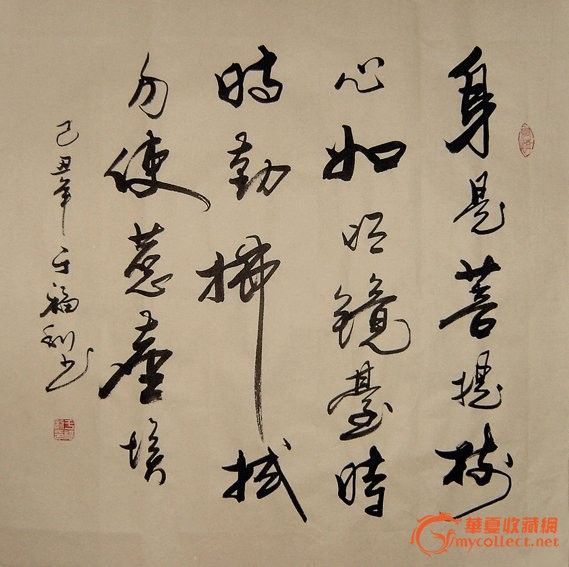 身是菩提樹
心如明鏡臺時
時勤拂拭
勿使惹塵埃
己丑年 福利书
華夏收藏網
mycollect.net